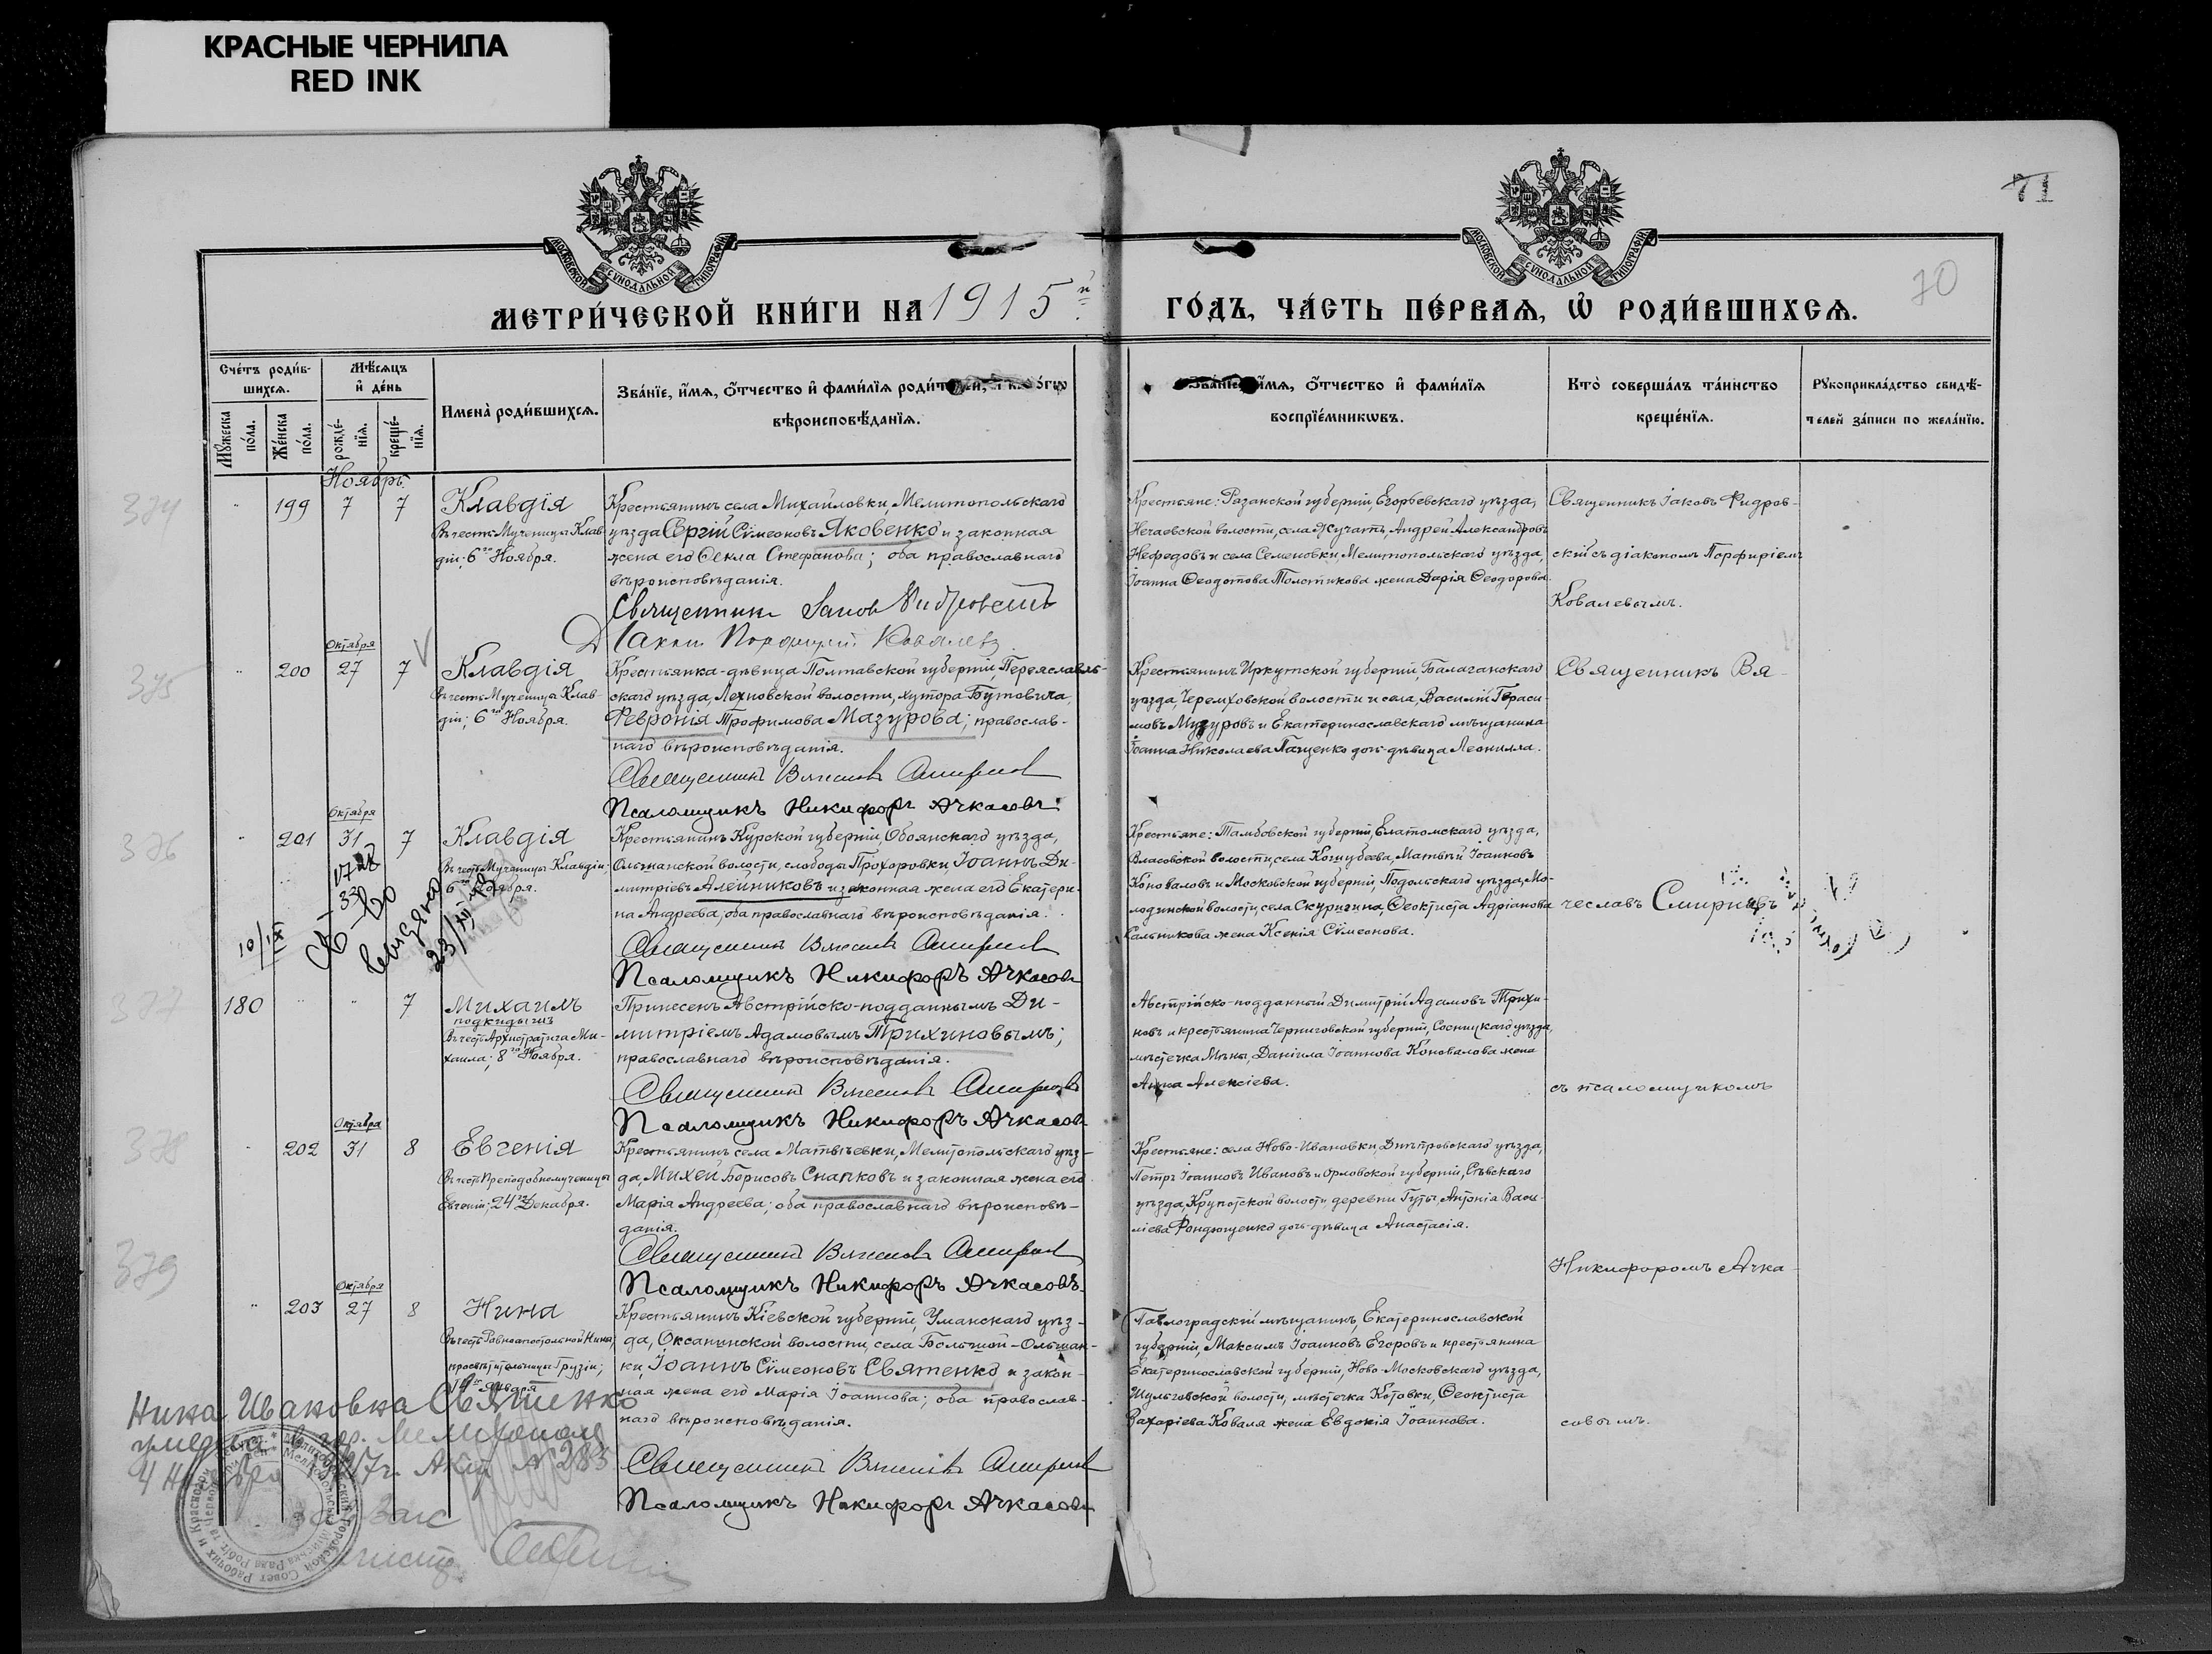 КРАСНЫЕ ЧЕРНИЛА
RED INK
71
70
МОСКОВСКОЙ СѴНОДАЛЬНОЙ ТИПОГРАФІИ
МОСКОВСКОЙ СѴНОДАЛЬНОЙ ТИПОГРАФІИ
МЕТРИ́ЧЕСКОЙ КНИ́ГИ НА 1915й
ГО́ДЪ, ЧА́СТЬ ПЕ́РВАѦ, Ѡ҆ РОДИ́ВШИХСѦ.
Сче́тъ роди́в-
шихсѧ.
Мꙋ́жеска по́ла.
Же́нска по́ла.
Мѣ́сѧцъ
и҆ де́нь
рожде́-
нїѧ.
креще́-
нїѧ.
И҆мена̀ роди́вшихсѧ.
Зва́нїе, и҆́мѧ, ѻ҆́тчество и҆ фами́лїѧ роди́телей, и҆ како́гѡ
вѣроисповѣ́данїѧ.
Зва́нїе, и҆́мѧ, ѻ҆́тчество и҆ фами́лїѧ
воспрїе́мникѡвъ.
Кто̀ соверша́лъ та́инство
креще́нїѧ.
Рꙋкоприкла́дство свидѣ́-
телей за́писи по жела́нїю.
Ноябрь
374
" 199 7 7
Клавдія
Въ честь Мученицы Клав-
діи; 6го Ноября.
Крестьянинъ села Михайловки, Мелитопольскаго
уѣзда Сергій Сѵмеоновъ Яковенко и законная
жена его Ѳекла Стефанова; оба православнаго
вѣроисповѣданія.
Священникъ Іаковъ Фидровскій
Діаконъ Порфирій Ковалевъ
Крестьяне: Рязанской губерніи, Егорьевскаго уѣзда,
Нечаевской волости, села Жучать, Андрей Александровъ
Нефедовъ и села Семеновки, Мелитопольскаго уѣзда,
Іоанна Ѳеодотова Толстикова жена Дарія Ѳеодорова.
Священникъ Іаковъ Фидров-
скій съ діакономъ Порфиріемъ
Ковалевымъ.
375
Октября
" 200 27 7
Клавдія
Въ честь Мученицы Клав-
діи; 6го Ноября.
Крестьянка-дѣвица Полтавской губерніи, Переяслав-
скаго уѣзда, Лехновской волости, хутора Бутовича,
Февронія Трофимова Мазурова; православ-
наго вѣроисповѣданія.
Священникъ Вячеславъ Смирновъ
Псаломщикъ Никифоръ Ачкасовъ
Крестьянинъ Иркутской губерніи, Балаганскаго
уѣзда, Черемховской волости и села, Василій Гераси-
мовъ Мазуровъ и Екатеринославскаго мѣщанина
Іоанна Николаева Пащенко дочь-дѣвица Леонилла.
Священникъ Вя-
376
Октября
" 201 31 7
Клавдія
Въ честь Мученицы Клавдіи;
6го Ноября.
Крестьянинъ Курской губерніи, Обоянскаго уѣзда,
Ольшанской волости, слободы Прохоровки, Іоаннъ Ди-
митріевъ Алейниковъ и законная жена его Екатери-
на Андреева; оба православнаго вѣроисповѣданія.
Священникъ Вячеславъ Смирновъ
Псаломщикъ Никифоръ Ачкасовъ
Крестьяне: Тамбовской губерніи, Елатомскаго уѣзда,
Власовской волости, села Кошубеева, Матвѣй Іоанновъ
Коноваловъ и Московской губерніи, Подольскаго уѣзда, Мо-
лодинской волости, села Скуригина, Ѳеоктиста Адріанова
Сальникова жена Ксенія Сѵмеонова.
чеславъ Смирновъ
10/IX
выдана
23/XII
377
180 " " 7
Михаилъ
подкидышъ
Въ честь Архистратига Ми-
хаила; 8го Ноября.
Принесенъ Австрійско-подданнымъ Ди-
митріемъ Адамовымъ Трихиновымъ;
православнаго вѣроисповѣданія.
Священникъ Вячеславъ Смирновъ
Псаломщикъ Никифоръ Ачкасовъ
Австрійско-подданный Димитрій Адамовъ Трихи-
новъ и крестьянина Черниговской губерніи, Сосницкаго уѣзда,
мѣстечка Мены, Даніила Іоаннова Коновалова жена
Анна Алексіева.
съ псаломщикомъ
378
Октября
" 202 31 8
Евгенія
Въ честь Преподобномученицы
Евгеніи; 24го Декабря.
Крестьянинъ села Матвѣевки, Мелитопольскаго уѣз-
да, Михей Борисовъ Снапковъ и законная жена его
Марія Андреева; оба православнаго вѣроисповѣ-
данія.
Священникъ Вячеславъ Смирновъ
Псаломщикъ Никифоръ Ачкасовъ
Крестьяне: села Ново-Ивановки, Днѣпровскаго уѣзда,
Петръ Іоанновъ Ивановъ и Орловской губерніи, Сѣвскаго
уѣзда, Крупотской волости, деревни Гуты, Антонія Васи-
ліева Фондющенко дочь-дѣвица Анастасія.
Никифоромъ Ачка-
379
Октября
" 203 27 8
Нина
Въ честь Равноапостольной Нины,
просвѣтительницы Грузіи;
14го Января
Крестьянинъ Кіевской губерніи, Уманскаго уѣз-
да, Оксанинской волости, села Большой-Ольшан-
ки, Іоаннъ Сѵмеоновъ Святенко и закон-
ная жена его Марія Іоаннова; оба православ-
наго вѣроисповѣданія.
Священникъ Вячеславъ Смирновъ
Псаломщикъ Никифоръ Ачкасовъ
Павлоградскій мѣщанинъ, Екатеринославской
губерніи, Максимъ Іоанновъ Егоровъ и крестьянина
Екатеринославской губерніи, Ново-Московскаго уѣзда,
Шульговской волости, мѣстечка Котовки, Ѳеоктиста
Захаріева Коваля жена Евдокія Іоаннова.
совымъ.
Нина Ивановна Святенко
умерла в гор. Мелитополе
4 Ноября Акт № 283
Загс